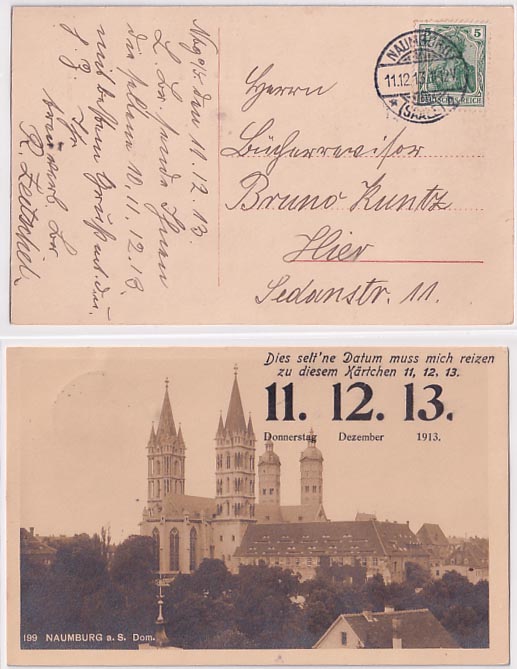 Nbg a/S. den 11.12.13.
L. Br. sende Ihnen
die seltene 10.11.12.13.
mit bestem Gruß
Ihr
R.
NAUMBURG
11.12.13
(SAALE)
5
DEUTSCHES REICH
Herrn
Bücherrevisor
Bruno Kuntz
Hier
Sedanstr. 11.
Dies selt'ne Datum muss mich reizen
zu diesem Kärtchen 11, 12, 13.
11. 12. 13.
Donnerstag Dezember 1913.
199 NAUMBURG a. S. Dom.